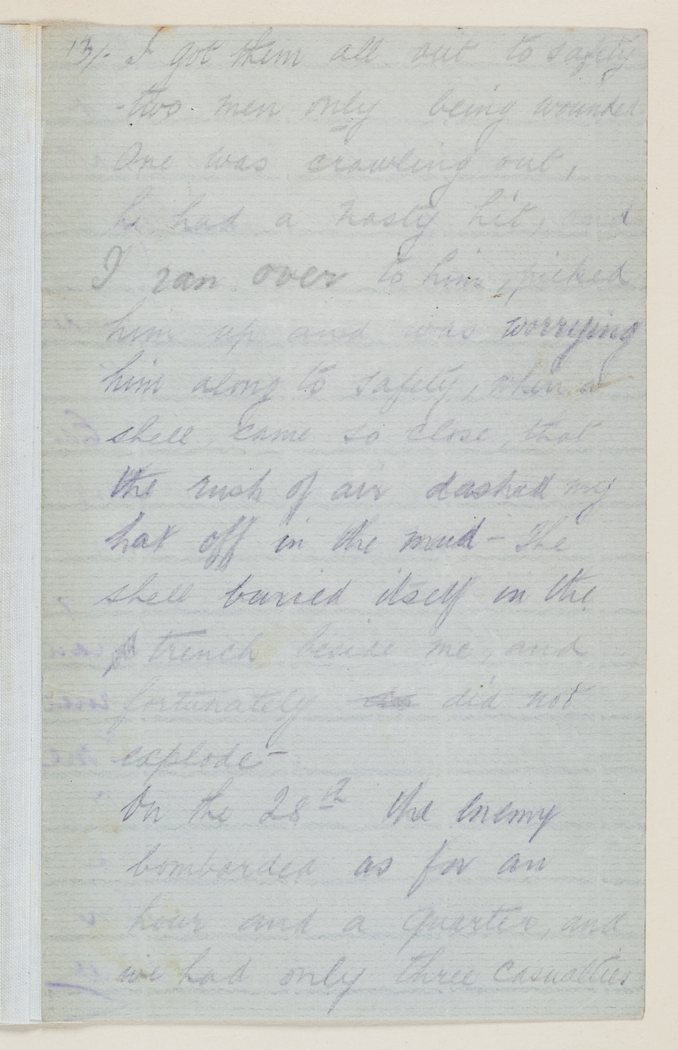 13/- I got them all out to safety
-two men only being wounded
One was crawling out,
he had a nasty hit, and
I ran over to him, picked
him up and was worrying
him along to safety, when a
shell came so close, that
the rush of air dashed my
hat off in the mud - The
shell buried itself in the
trench beside me, and
fortunately did not
explode -
On the 28th the enemy
bombarded as for an
hour and a quarter, and
we had only three casualties